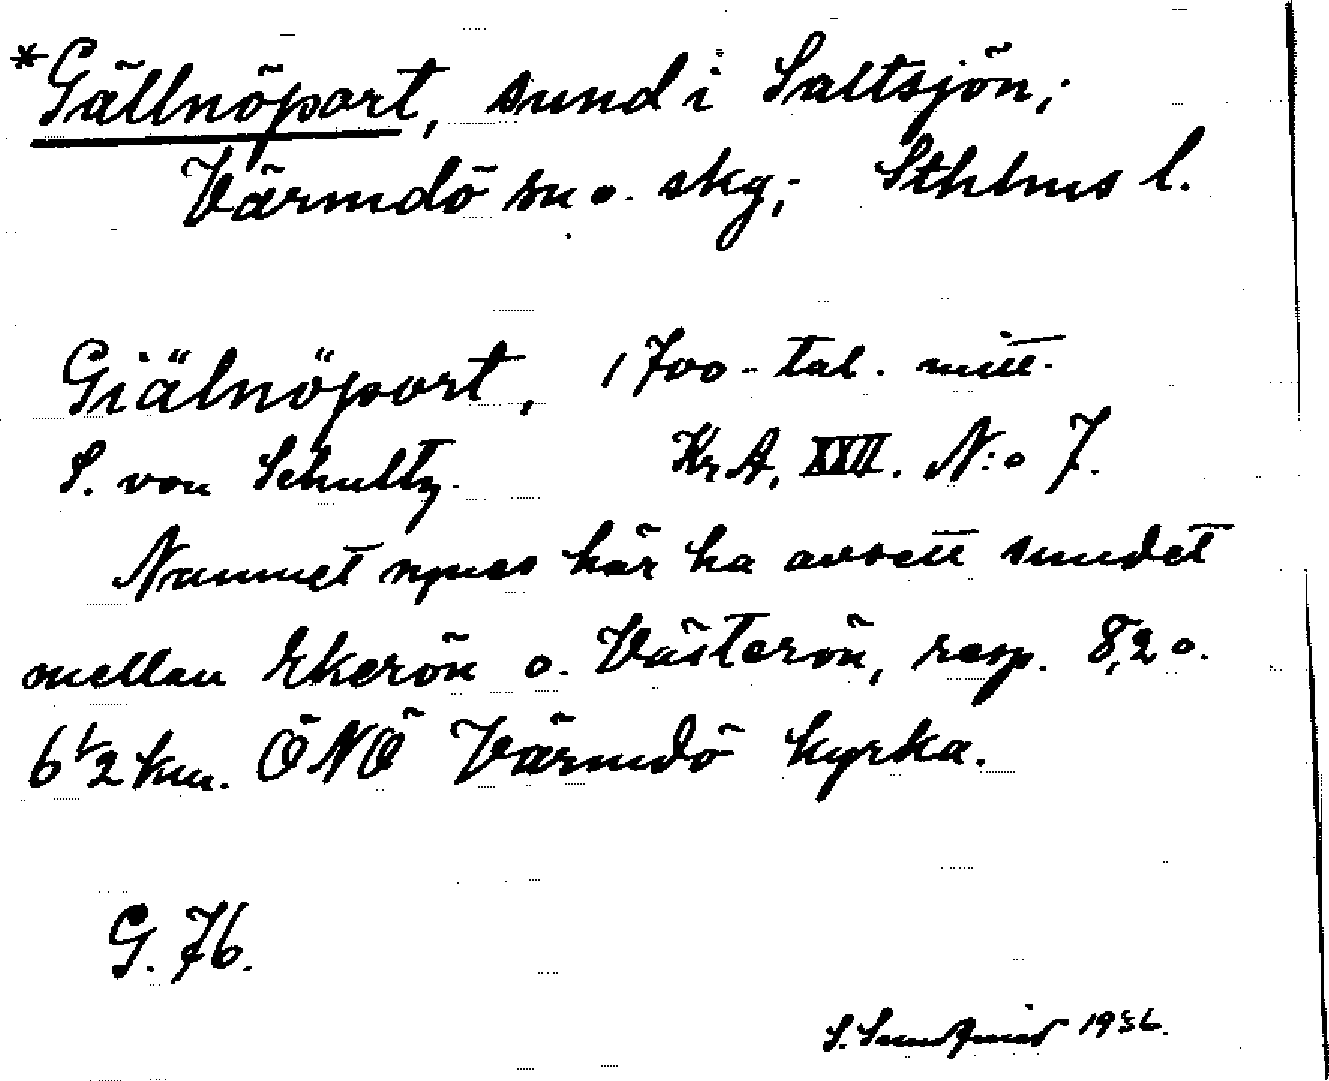 *Gällnöport, sund i Saltsjön,;
Värmdö sn o. skg,; Sthlms l.
Giälnöport, 1700-tal. mitt.
S. von Schultz. Kr A, XXII. N:o 7.
Namnet synes här ha avsett sundet
mellan Ekerön o. Västerön, resp. 8,2 o.
6 1/2 km. ÖNÖ Värmdö kyrka.
G. 76.
S. Sundqvist 1936.